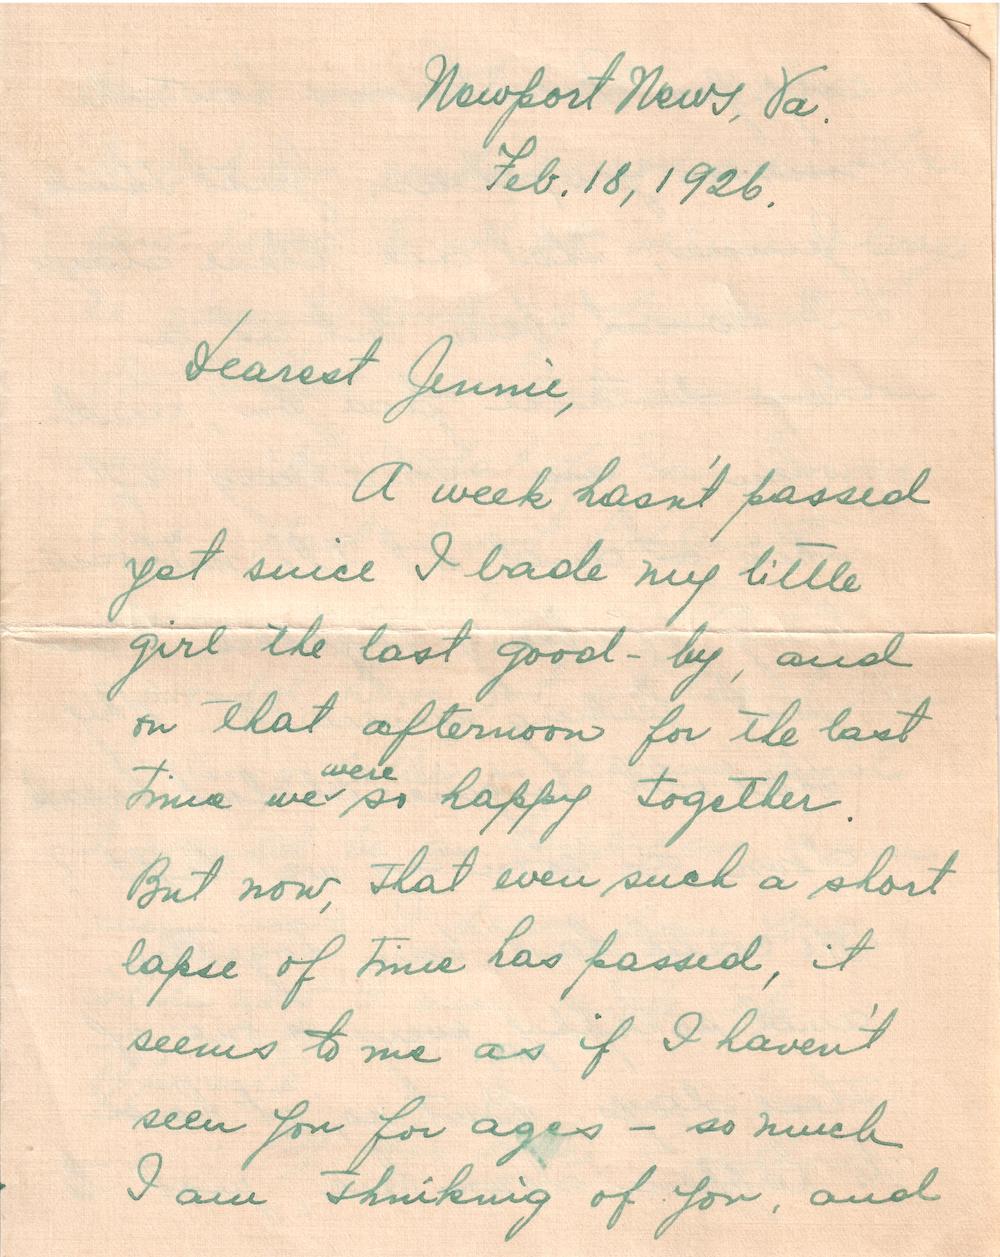 Newport News, Va.
Feb. 18, 1926.
Dearest Jennie,
A week hasn't passed
yet since I bade my little
girl the last good-by, and
on that afternoon for the last
were
time we so happy together.
But now, that even such a short
lapse of time has passed, it
seems to me as if I haven't
seen you for ages - so much
I am thinking of you, and